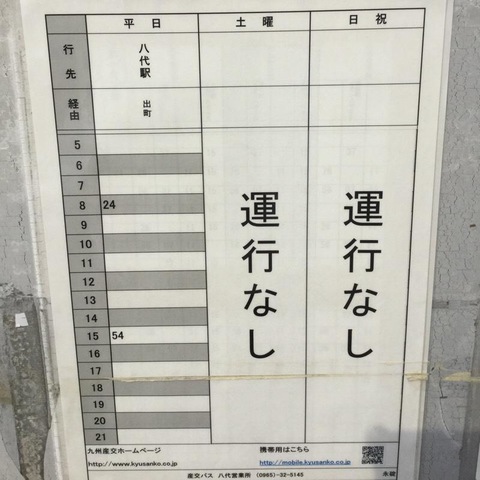 平日 土曜 日祝
行先 八代駅
経由 出町
5
6
7
8 24
9
10
11
12
13
14
15 54
16
17
18
19
20
21
運行なし
運行なし
九州産交ホームページ 携帯用はこちら
http://www.kyusanko.co.jp http://mobile.kyusanko.co.jp
産交バス 八代営業所 (0965)-32-5145